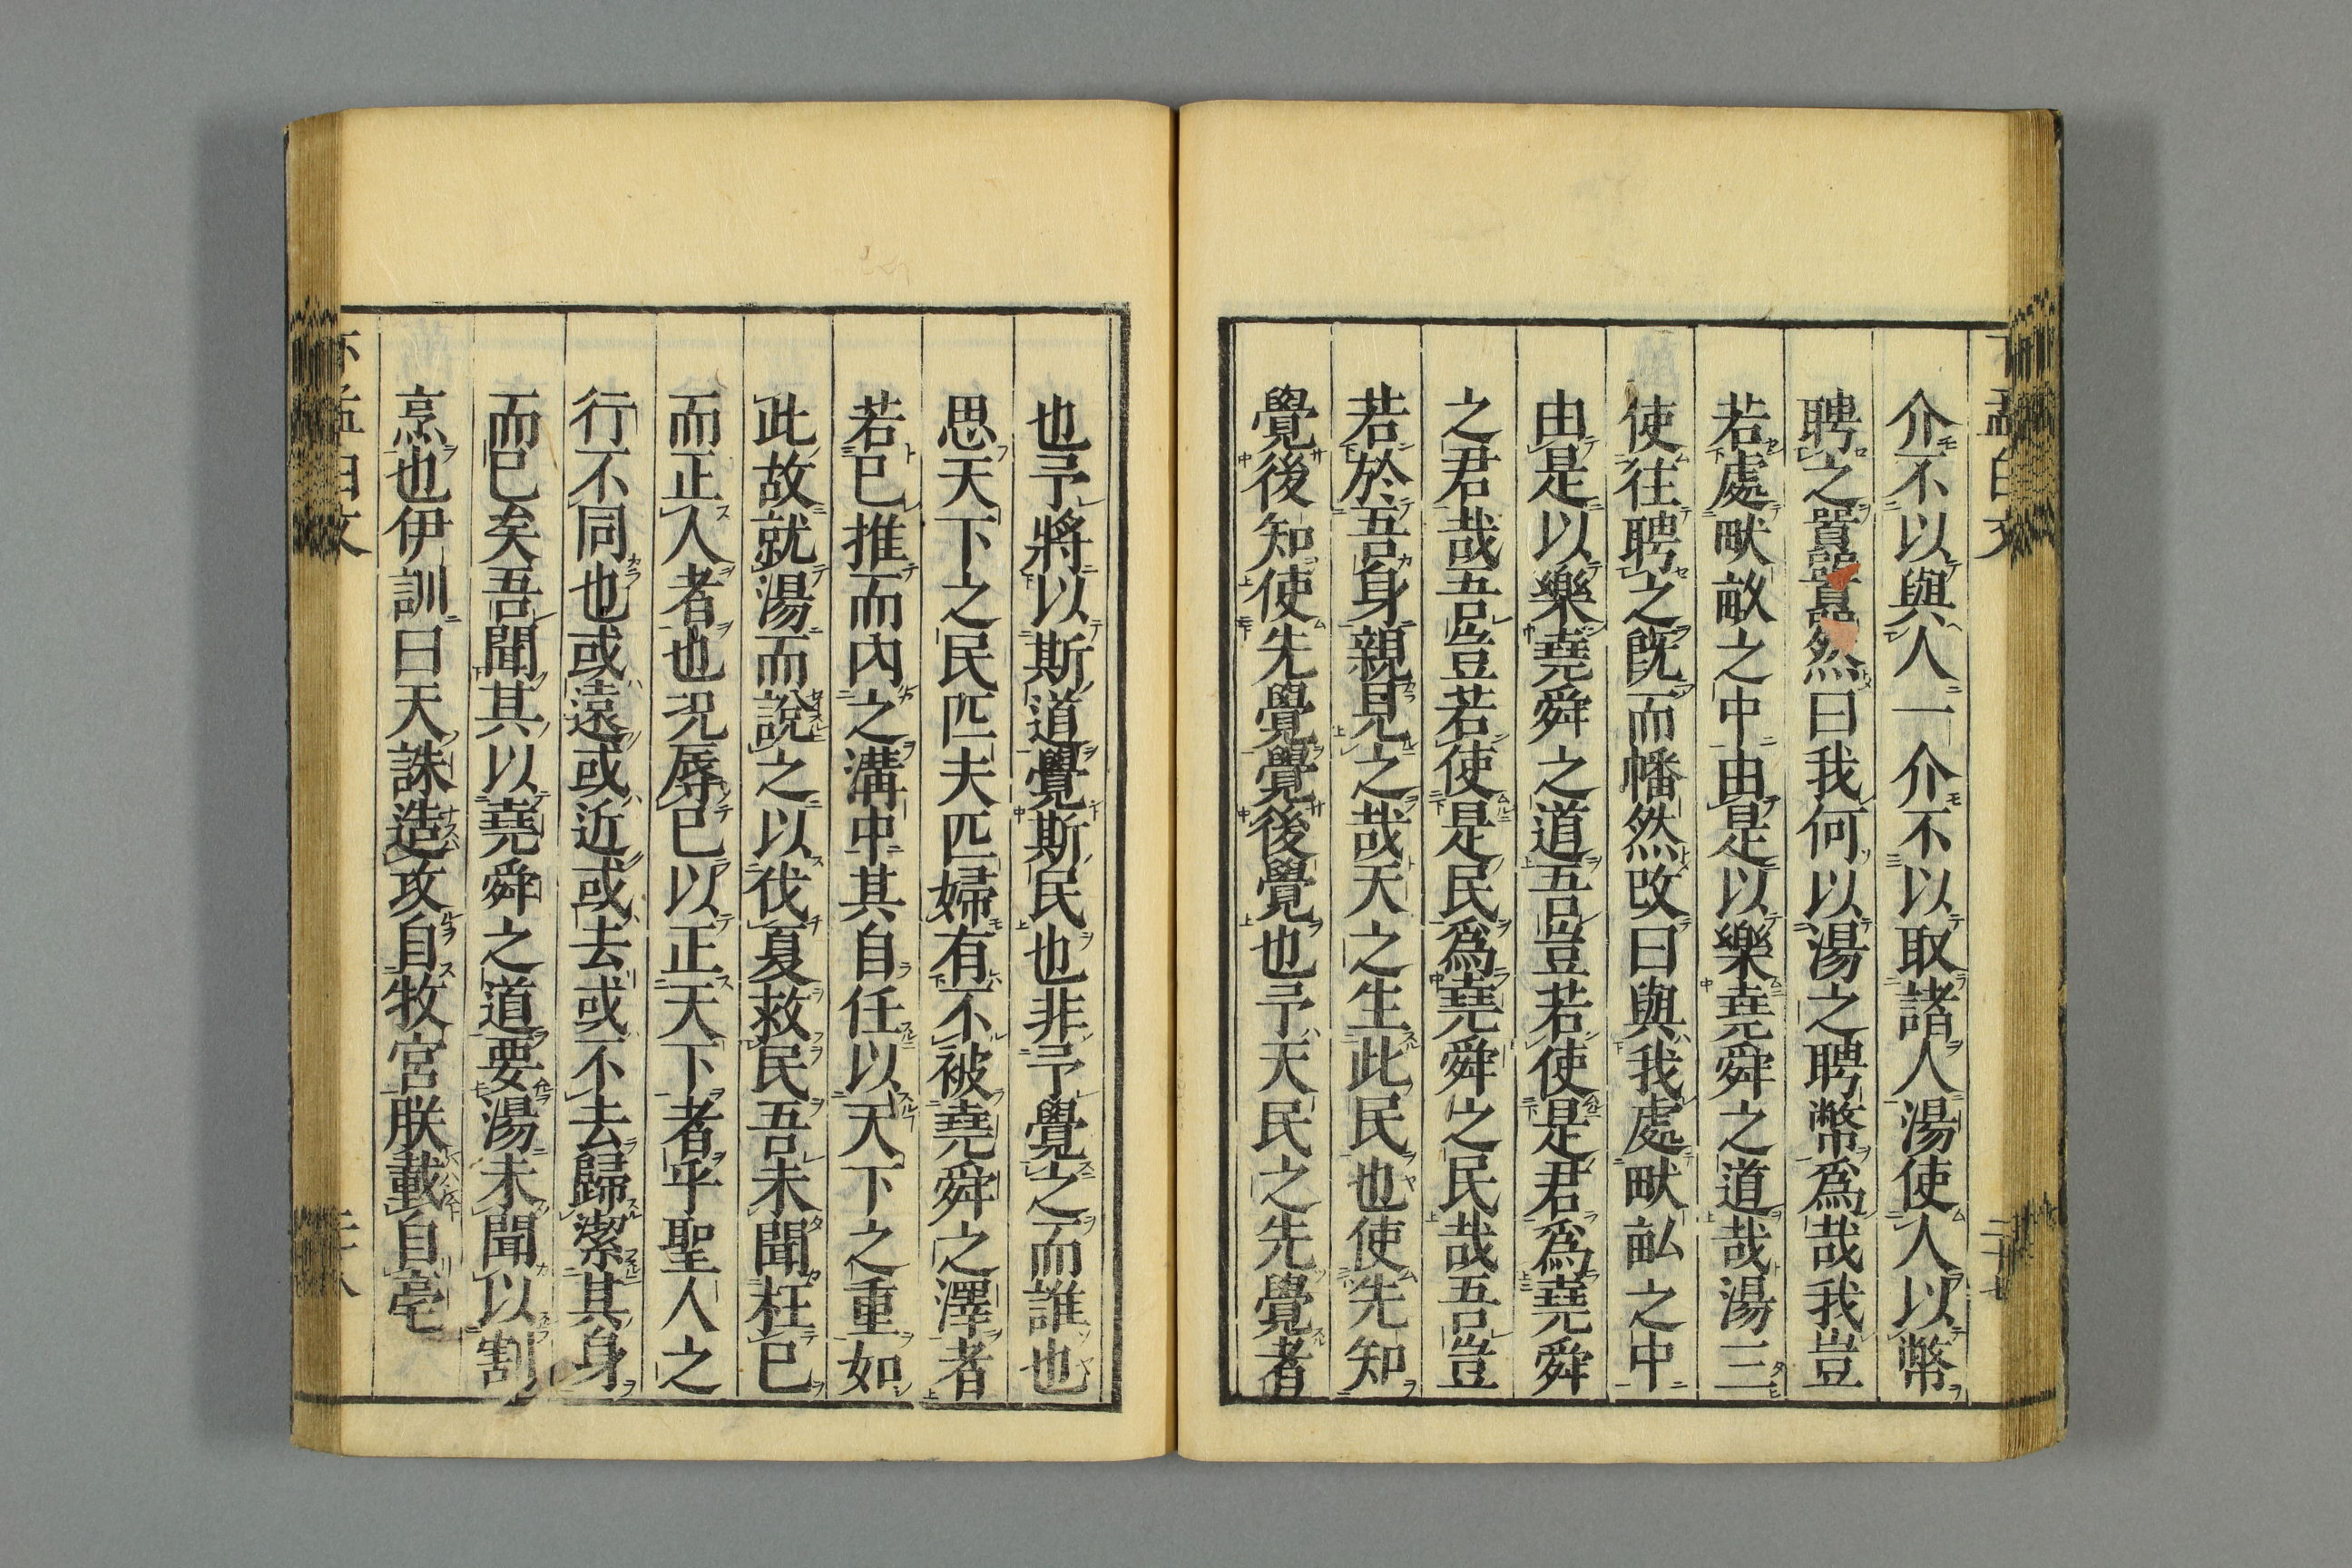 介不以與人一介不以取諸人湯使人以幣
聘之囂囂然曰我何以湯之聘幣爲哉我豈
若處畎畝之中由是以樂堯舜之道哉湯三
使往聘之旣而幡然改曰與我處畎畝之中
由是以樂堯舜之道吾豈若使是君爲堯舜
之君哉吾豈若使是民爲堯舜之民哉吾豈
若於吾身親見之哉天之生此民也使先知
覺後知使先覺覺後覺也予天民之先覺者
也予將以斯道覺斯民也非予覺之而誰也
思天下之民匹夫匹婦有不被堯舜之澤者
若己推而內之溝中其自任以天下之重如
此故就湯而說之以伐夏救民吾未聞枉己
而正人者也況辱己以正天下者乎聖人之
行不同也或遠或近或去或不去歸潔其身
而已矣吾聞其以堯舜之道要湯未聞以割
烹也伊訓曰天誅造攻自牧宮朕載自亳